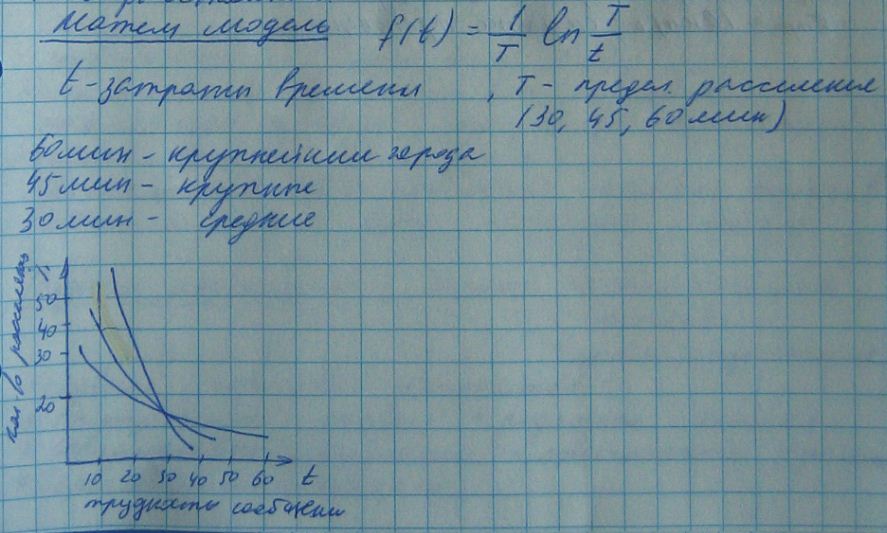 Матем модель f(t) = 1/T ln T/t
t - затраты времени, T - предел. расселения
(30, 45, 60 мин)
60 мин - крупнейшии города
45 мин - крупные
30 мин - средние
50
40
30
20
10 20 30 40 50 60 t
трудность сообщения